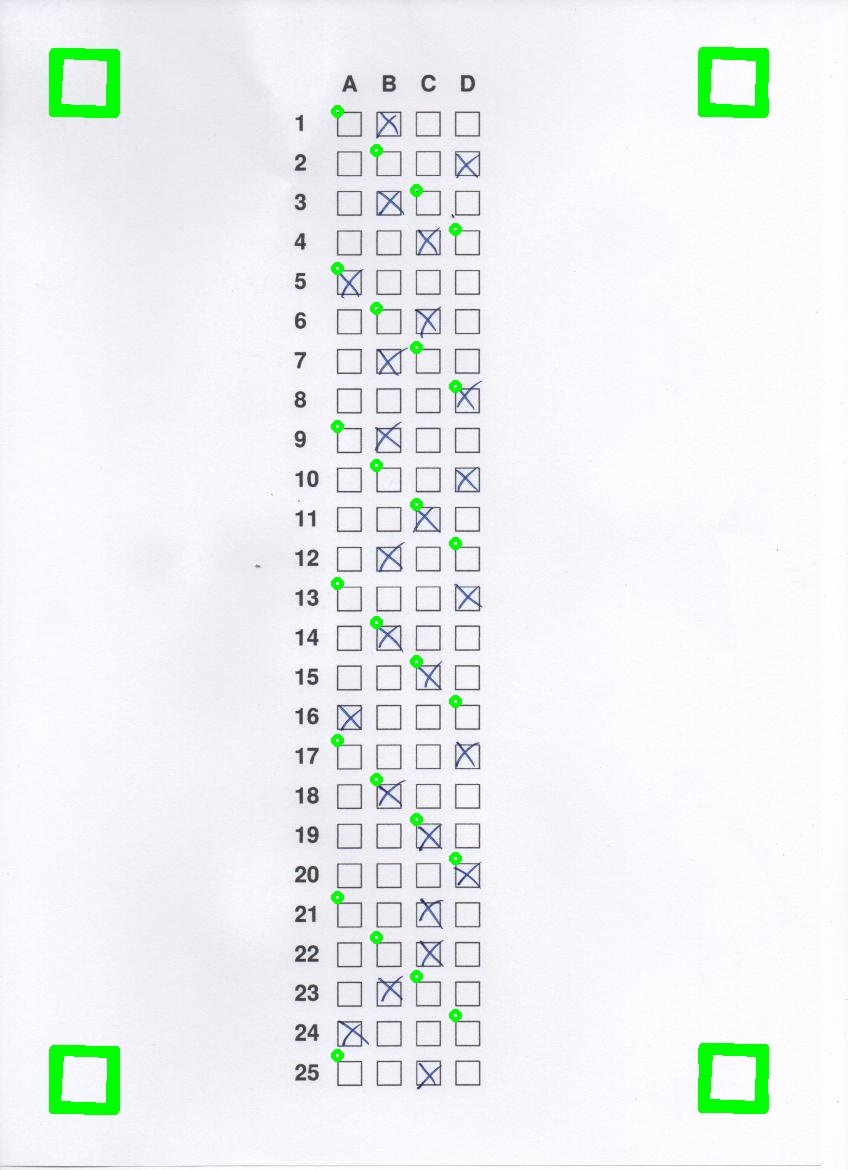 A B C D
1
2
3
4
5
6
7
8
9
10
11
12
13
14
15
16
17
18
19
20
21
22
23
24
25